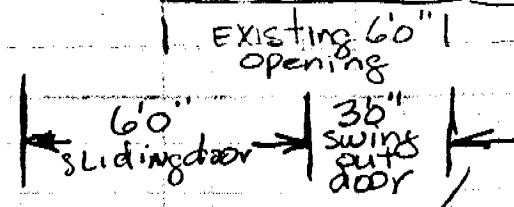 EXISTING 6'0"
opening
6'0"
SLIDING door
3'0"
swing
out
door